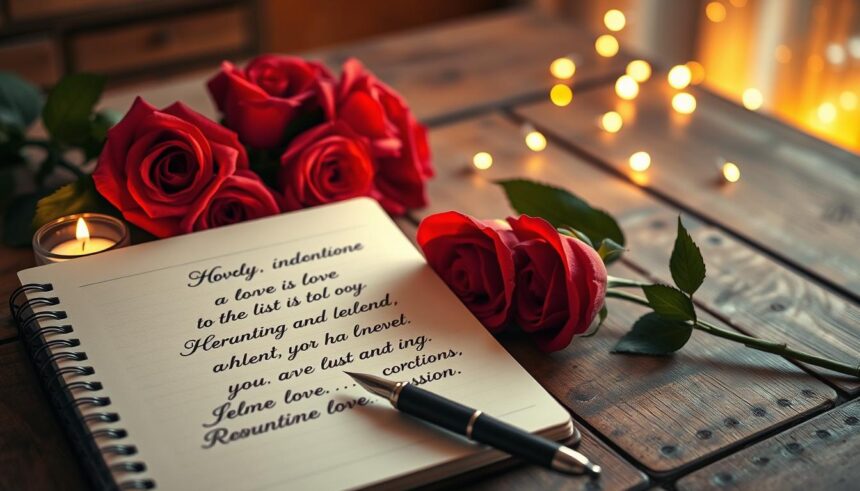 Hovcly. indontione
a lonve is love
to the list is tol ooy
Herunting and leilend,
awhlent, yor ha lnevet.
you. ave lust and ing.
Jelme love.... corctions,
Resountine love.. ssion.